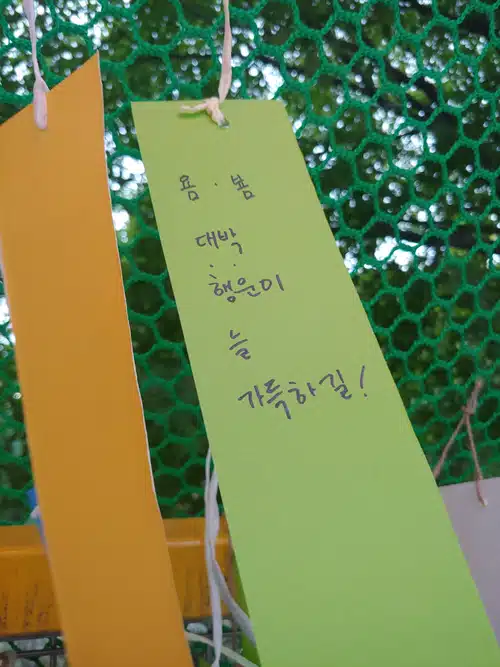 욤 · 봄
대박
행운이
늘
가득하길!